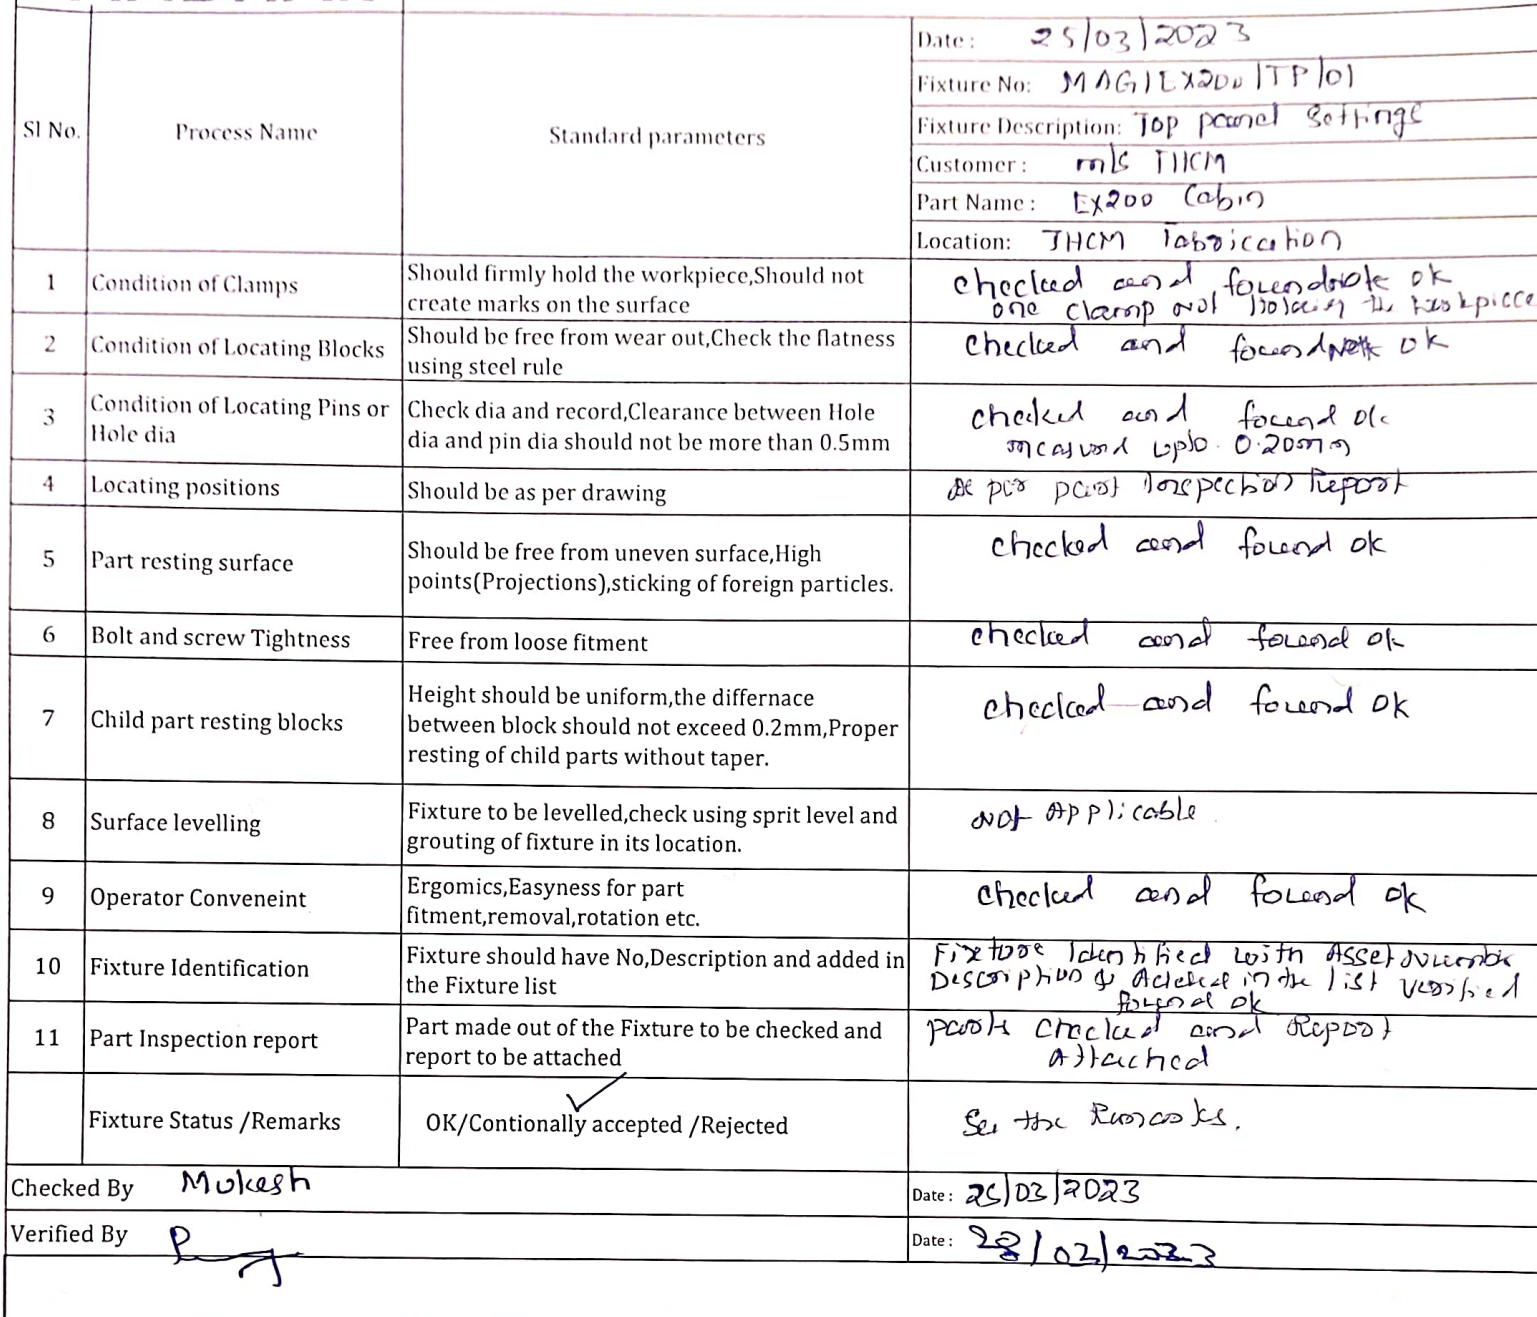 Date : 25/03/2023
Fixture No: MAG/EX200/TP/01
Fixture Description: Top panel Settings
Customer : m/s THCM
Part Name : EX200 Cabin
Location: THCM fabrication
Sl No. Process Name Standard parameters
1 Condition of Clamps Should firmly hold the workpiece,Should not create marks on the surface checked and found not ok
one clamp not holding the workpiece
2 Condition of Locating Blocks Should be free from wear out,Check the flatness using steel rule checked and found ok
3 Condition of Locating Pins or Hole dia Check dia and record,Clearance between Hole dia and pin dia should not be more than 0.5mm checked and found ok
measured upto 0.20mm
4 Locating positions Should be as per drawing as per part Inspection Report
5 Part resting surface Should be free from uneven surface,High points(Projections),sticking of foreign particles. checked and found ok
6 Bolt and screw Tightness Free from loose fitment checked and found ok
7 Child part resting blocks Height should be uniform,the differnace between block should not exceed 0.2mm,Proper resting of child parts without taper. checked and found ok
8 Surface levelling Fixture to be levelled,check using sprit level and grouting of fixture in its location. Not Applicable
9 Operator Conveneint Ergomics,Easyness for part fitment,removal,rotation etc. checked and found ok
10 Fixture Identification Fixture should have No,Description and added in the Fixture list Fixture Identified with Asset number
Description & Added in the list verified
found ok
11 Part Inspection report Part made out of the Fixture to be checked and report to be attached parts checked and Report
Attached
Fixture Status /Remarks OK/Contionally accepted /Rejected See the Remarks.
Checked By Mukesh Date : 25/03/2023
Verified By Date : 28/03/2023